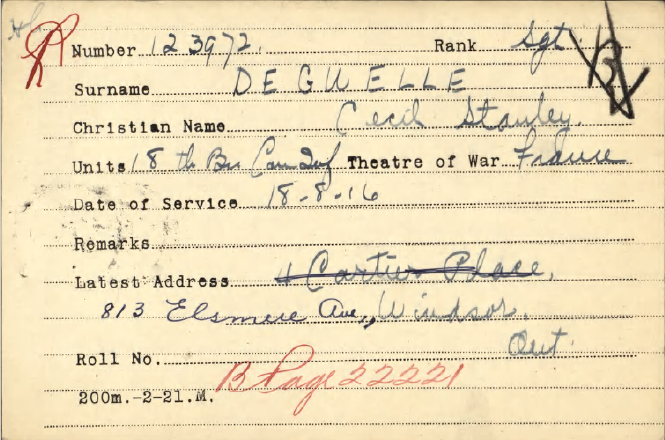 Number 123972. Rank Sgt
Surname DEGUELLE
Christian Name Cecil Stanley.
Units 18th Bn Can Inf Theatre of War France
Date of Service 18-8-16
Remarks
Latest Address 4 Cartier Place,
813 Elsmere Ave., Windsor.
Ont.
Roll No.
B Page 22221
200m.-2-21.M.